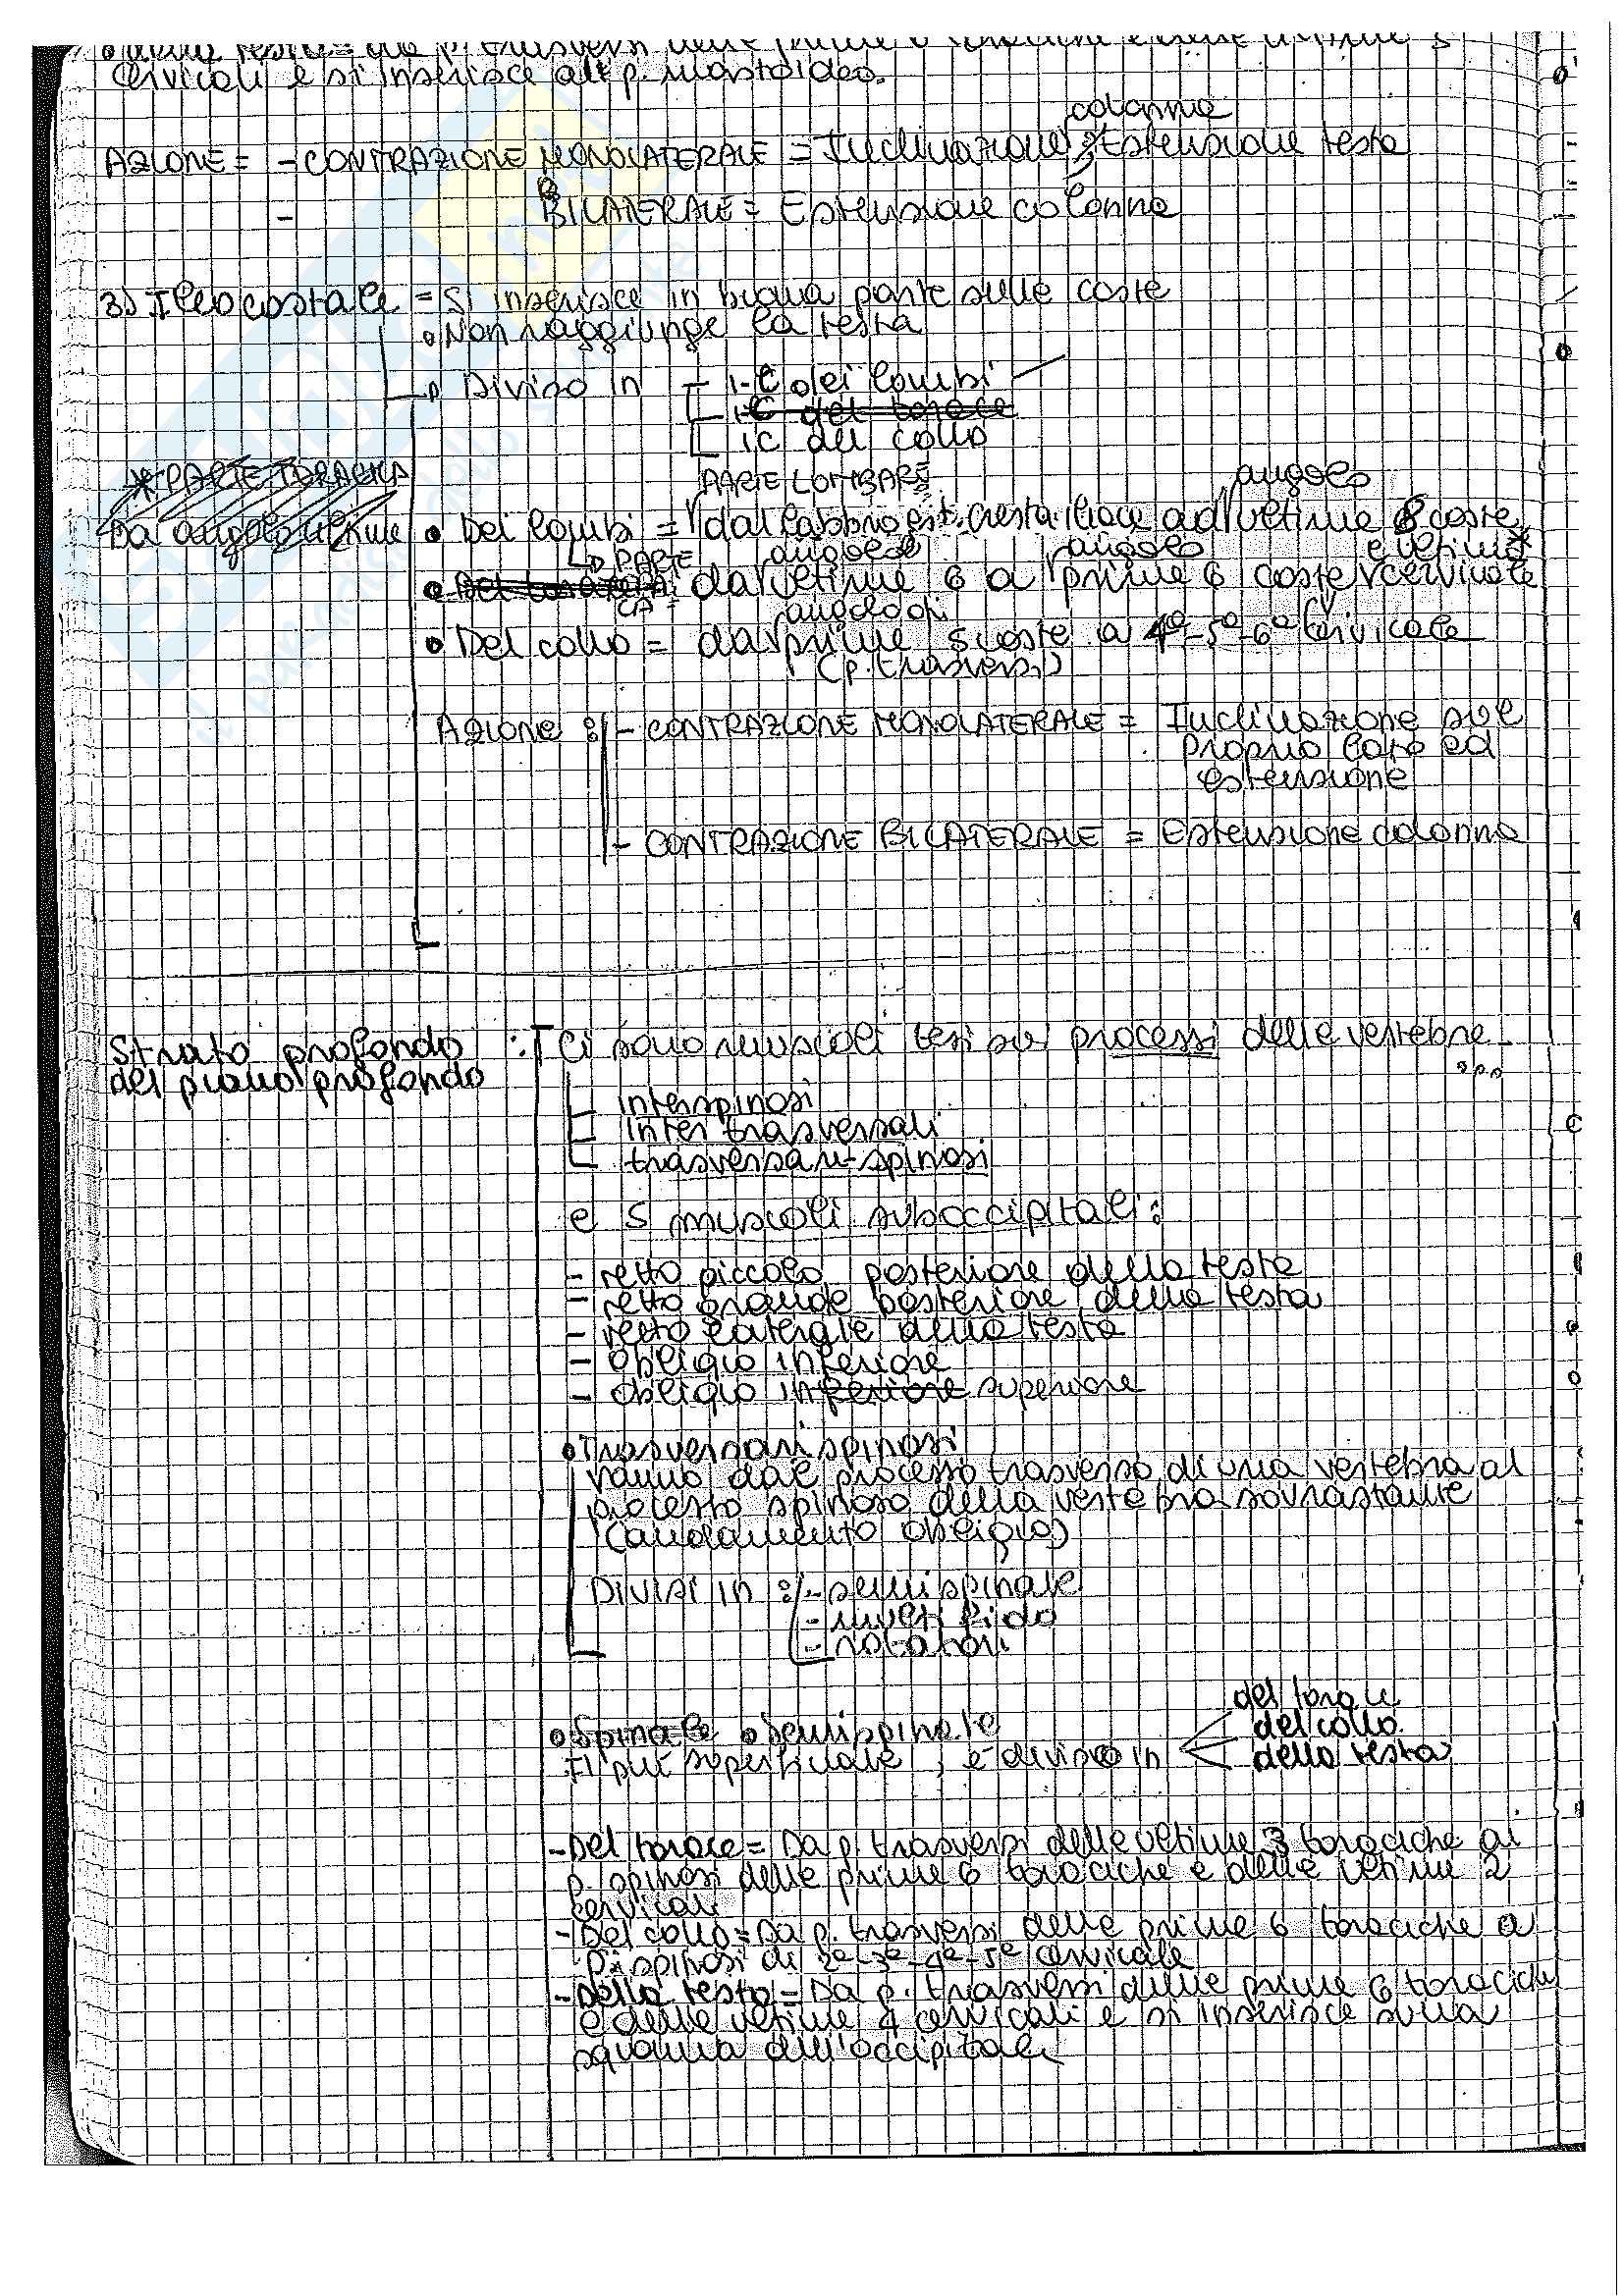 della testa = dai p. trasversi delle prime
cervicali e si inserisce al p. mastoideo.
colonna
AZIONE = - CONTRAZIONE MONOLATERALE = Inclinazione, Estensione testa
- BILATERALE = Estensione colonna
3) Ileocostale = Si inserisce in buona parte sulle coste
• Non raggiunge la testa
Diviso in - i-C dei lombi
i-C del torace
i.C del collo
* PARTE TORACICA
PARTE LOMBARE
angolo
Da angolo ultime
• Dei lombi = dal labbro est. cresta iliaca ad ultime 6 coste
PARTE
angolo
angolo
e ultima
• Del da ultime 6 a prime 6 coste cervicale
CA =
angolo di
• Del collo = da prime 5 coste a 4ª-5ª-6ª cervicale
(p. trasversi)
AZIONE : - CONTRAZIONE MONOLATERALE = Inclinazione sul
proprio lato ed
estensione
- CONTRAZIONE BILATERALE = Estensione colonna
Strato profondo : Ci sono muscoli tesi sui processi delle vertebre
del piano profondo
interspinosi
inter trasversali
trasversari-spinosi
e 5 muscoli suboccipitali:
- retto piccolo posteriore della testa
- retto grande posteriore della testa
- retto laterale della testa
- obliquo inferiore
- obliquo inferiore superiore
• Trasversari spinosi
vanno dal processo trasverso di una vertebra al
processo spinoso della vertebra sovrastante
(andamento obliquo)
DIVISI IN : - semispinale
- multifido
- rotatori
del torace
• Spinale o semispinale
del collo
È il più superficiale, è diviso in
della testa
- Del torace = Da p. trasversi delle ultime 3 toraciche ai
p. spinosi delle prime 6 toraciche e delle ultime 2
cervicali
- Del collo = Da p. trasversi delle prime 6 toraciche a
p. spinosi di 2ª-3ª-4ª-5ª cervicale
- Della testa = Da p. trasversi delle prime 6 toraciche
e delle ultime 4 cervicali e si inserisce sulla
squama dell'occipitale